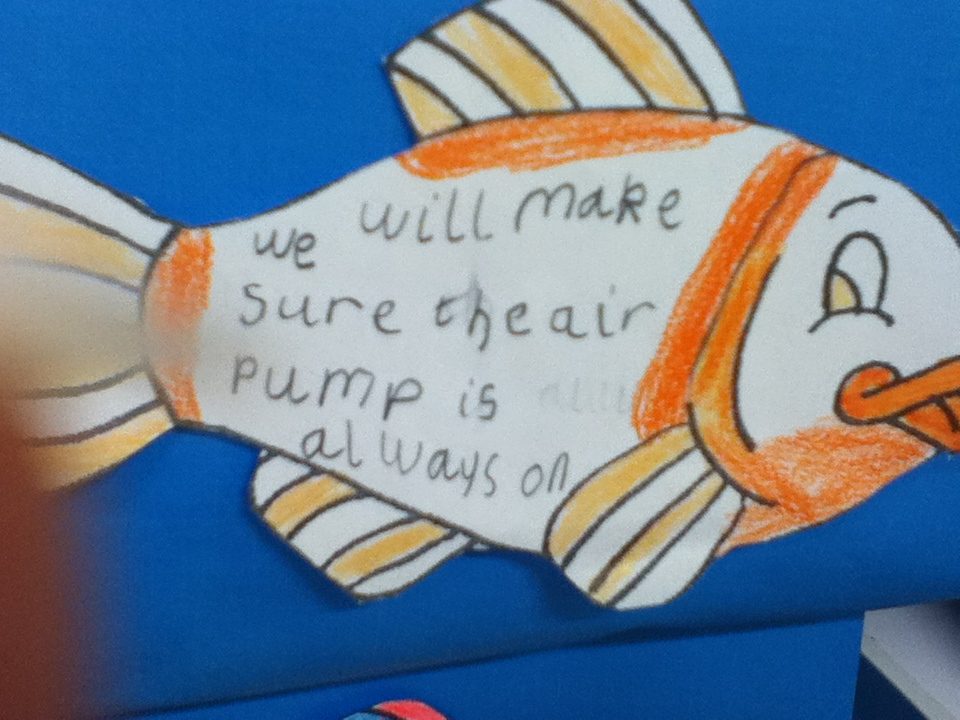 we will make
sure the air
pump is
always on